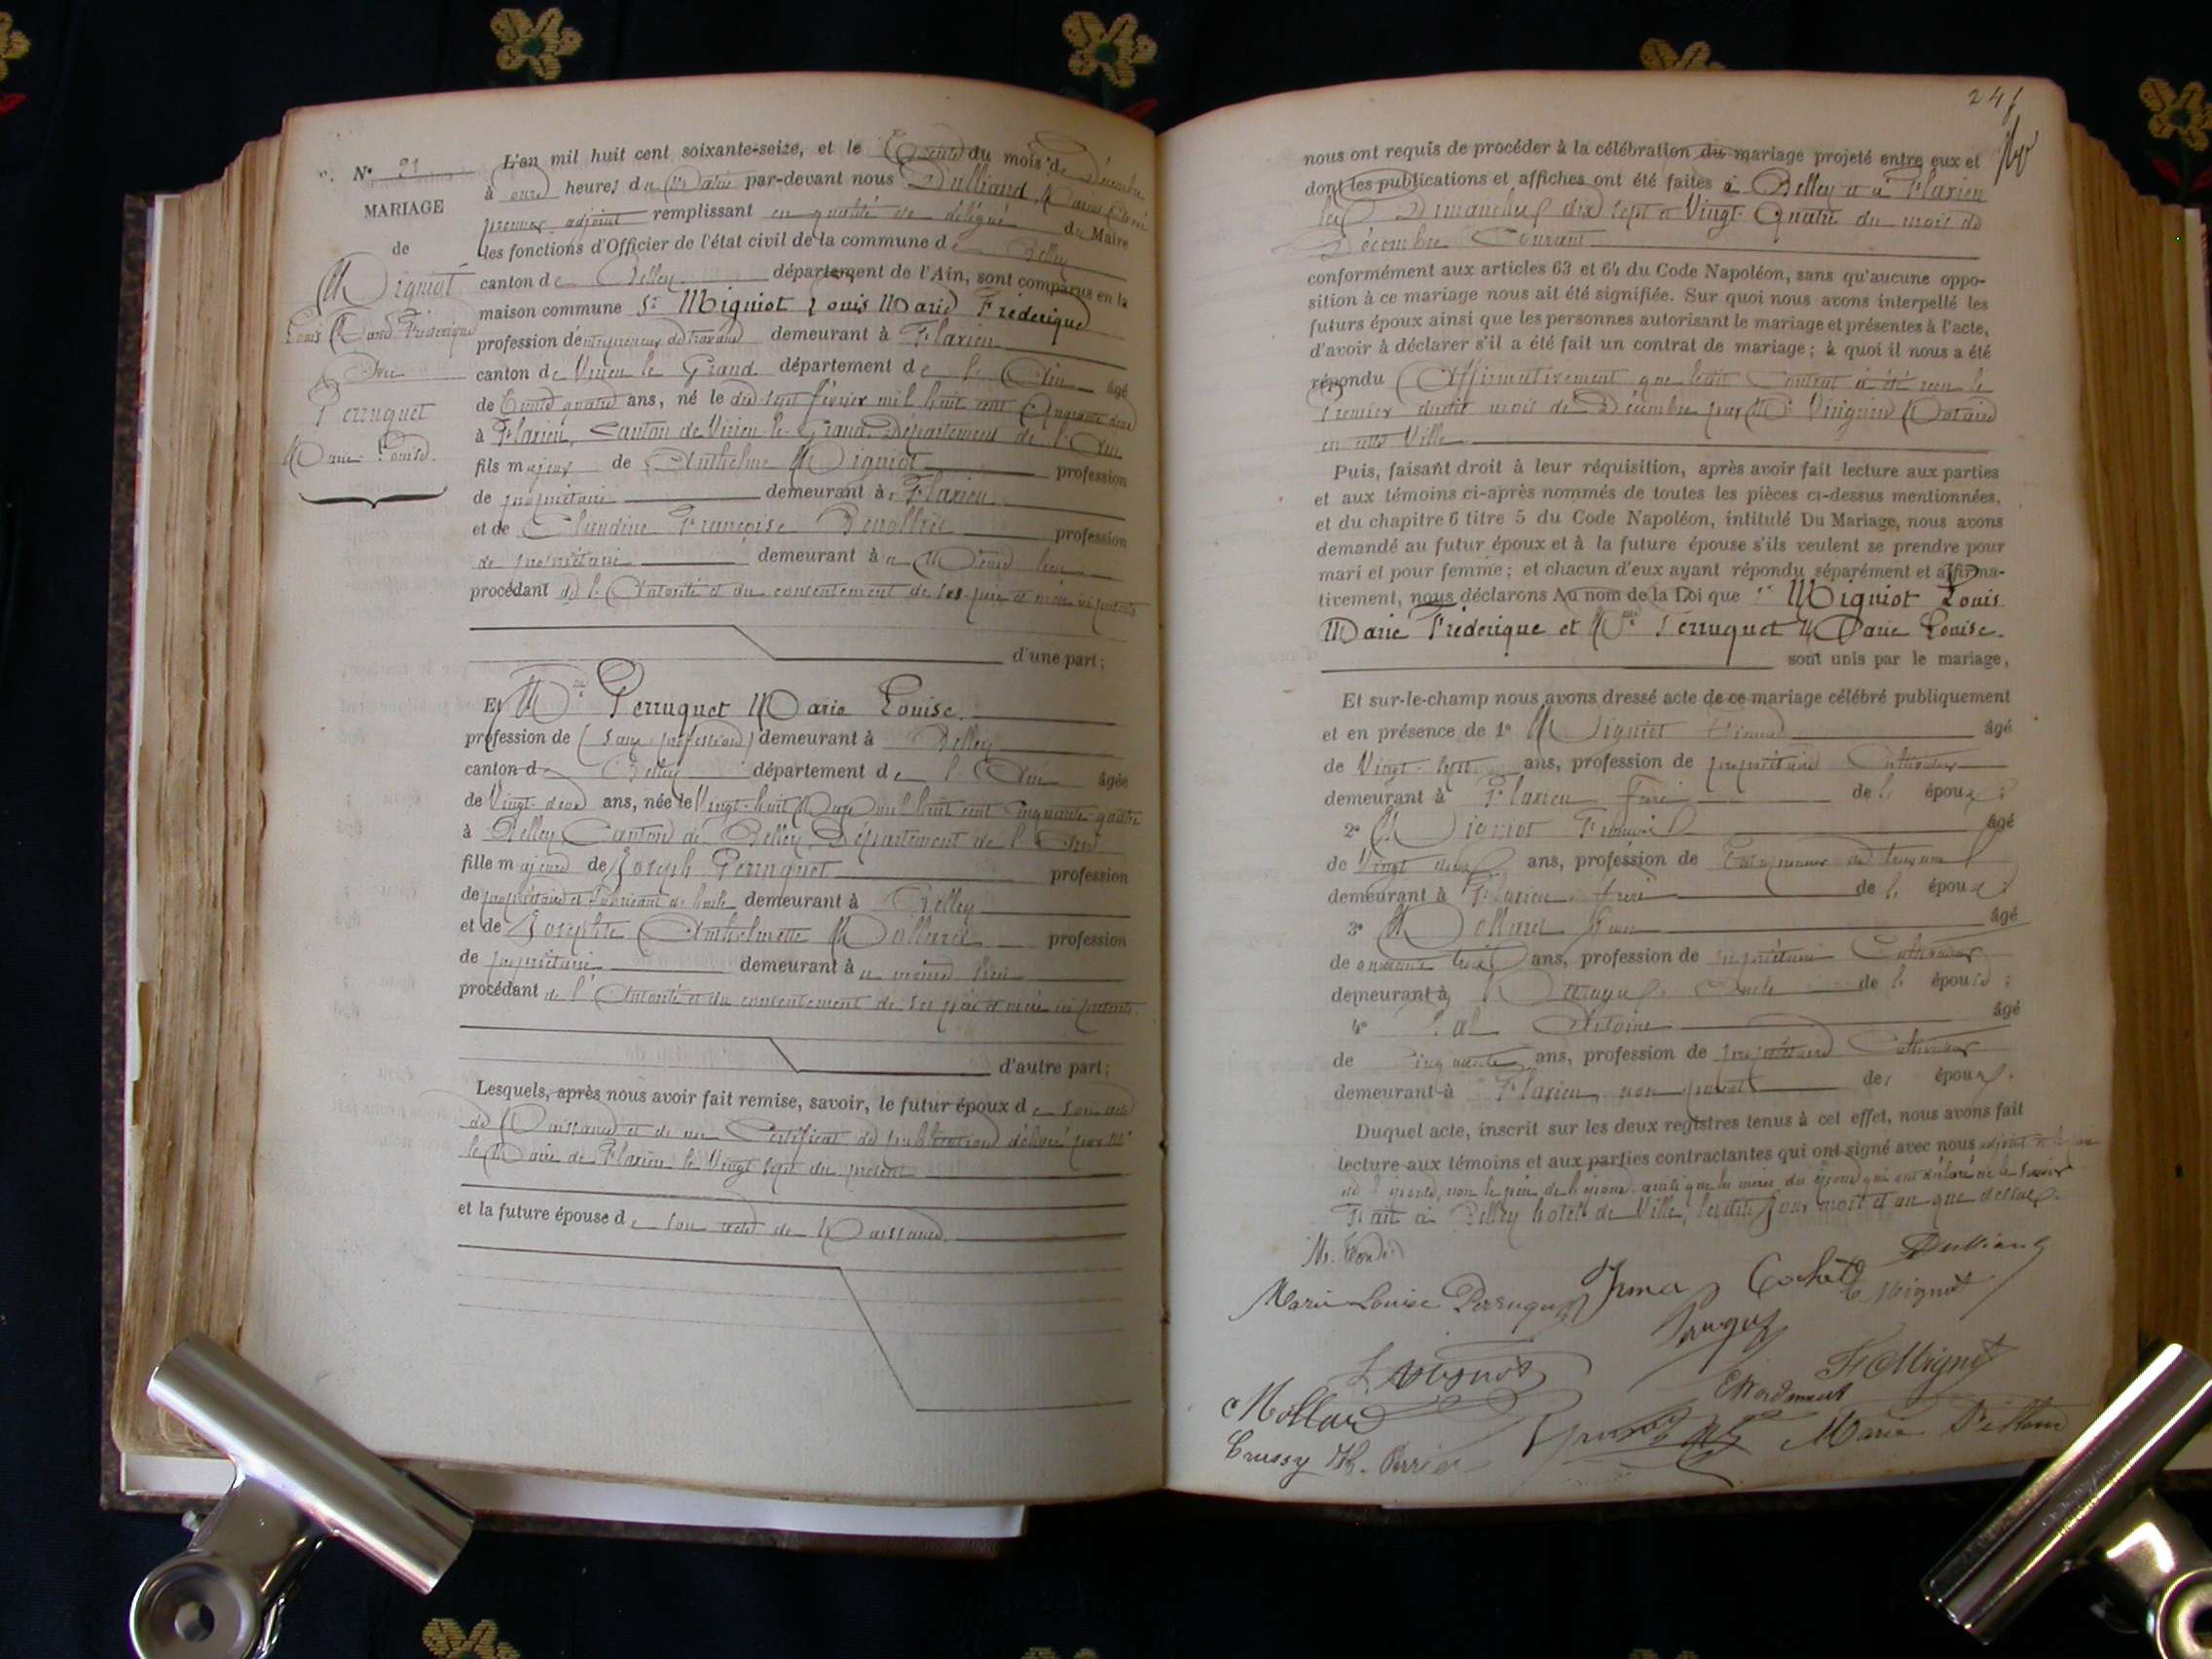 N° 21
MARIAGE
de
Migniot
Louis Marie Frédérique
Avec
Perruquet
Marie Louise.
L'an mil huit cent soixante-seize, et le Trente du mois de Décembre
à onze heures du Matin par-devant nous Dulliand,
premier adjoint remplissant en qualité de délégué du Maire
les fonctions d'Officier de l'état civil de la commune de Belley
canton de Belley département de l'Ain, sont comparus en la
maison commune Sr Migniot Louis Marie Frédérique
profession d'entrepreneur de travaux demeurant à Flaxieu
canton de Virieu le Grand département de l'Ain âgé
de Trente quatre ans, né le dix-sept février mil huit cent Quarante deux
à Flaxieu, Canton de Virieu-le-Grand, Département de l'Ain
fils majeur de Anthelme Migniot profession
de propriétaire demeurant à Flaxieu
et de Claudine Françoise profession
de propriétaire demeurant à u Même lieu
procédant de l'Autorité et du consentement de ses père et mère ici présents
d'une part;
Et Mlle Perruquet Marie Louise.
profession de (sans profession) demeurant à Belley
canton de Belley département de l'Ain âgée
de Vingt-deux ans, née le Vingt-huit Mars mil huit cent cinquante quatre
à Belley Canton de Belley, Département de l'Ain
fille majeure de Joseph Perruquet profession
de propriétaire et fabricant de demeurant à Belley
et de Josephte Anthelmette Mollard profession
de propriétaire demeurant à u même lieu
procédant de l'Autorité et du consentement de ses père et mère ici présents.
d'autre part;
Lesquels, après nous avoir fait remise, savoir, le futur époux de son acte
de Naissance et de un Certificat de publication délivré par Mr
le Maire de Flaxieu le Vingt sept du présent
et la future épouse de son acte de Naissance.
241
nous ont requis de procéder à la célébration du mariage projeté entre eux et
dont les publications et affiches ont été faites à Belley et à Flaxieu
les Dimanches dix sept et Vingt-Quatre du mois de
Décembre Courant
conformément aux articles 63 et 64 du Code Napoléon, sans qu'aucune oppo-
sition à ce mariage nous ait été signifiée. Sur quoi nous avons interpellé les
futurs époux ainsi que les personnes autorisant le mariage et présentes à l'acte,
d'avoir à déclarer s'il a été fait un contrat de mariage; à quoi il nous a été
répondu Affirmativement que ledit Contrat a été reçu le
Premier dudit mois de Décembre par Me Notaire
en cette Ville
Puis, faisant droit à leur réquisition, après avoir fait lecture aux parties
et aux témoins ci-après nommés de toutes les pièces ci-dessus mentionnées,
et du chapitre 6 titre 5 du Code Napoléon, intitulé Du Mariage, nous avons
demandé au futur époux et à la future épouse s'ils veulent se prendre pour
mari et pour femme; et chacun d'eux ayant répondu séparément et affirma-
tivement, nous déclarons Au nom de la Loi que Sr Migniot Louis
Marie Frédérique et Mlle Perruquet Marie Louise.
sont unis par le mariage,
Et sur-le-champ nous avons dressé acte de ce mariage célébré publiquement
et en présence de 1° Migniot âgé
de Vingt-sept ans, profession de propriétaire Cultivateur
demeurant à Flaxieu frère de l' époux;
2° Migniot âgé
de Vingt deux ans, profession de Entrepreneur de travaux
demeurant à Flaxieu frère de l' époux;
3° Mollard Jean âgé
de ans, profession de propriétaire Cultivateur
demeurant à Oncle de l' épouse;
4° Antoine âgé
de Cinquante ans, profession de propriétaire Cultivateur
demeurant à Flaxieu, non parent de époux.
Duquel acte, inscrit sur les deux registres tenus à cet effet, nous avons fait
lecture aux témoins et aux parties contractantes qui ont signé avec nous adjoint
non le père de l'époux, ainsi que les mères des époux qui ont déclaré ne le savoir
Fait à Belley hôtel de Ville, lesdits jour mois et an que dessus.
Marie Louise Perruquet Irma Cochet Dulliand
Migniot
L. Migniot
Mollard
Marie